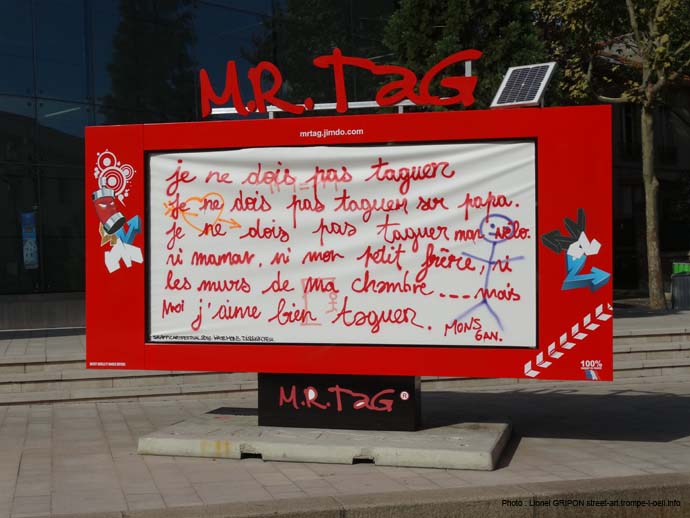 M.R. TaG
mrtag.jimdo.com
je ne dois pas taguer
je ne dois pas taguer sur papa.
je ne dois pas taguer mon vélo.
ni maman, ni mon petit frère, ni
les murs de ma chambre.... mais
Moi j'aime bien taguer.
MONS
GAN.
100%
M.R. TaG ®
Photo : Lionel GRIPON street-art.trompe-l-oeil.info